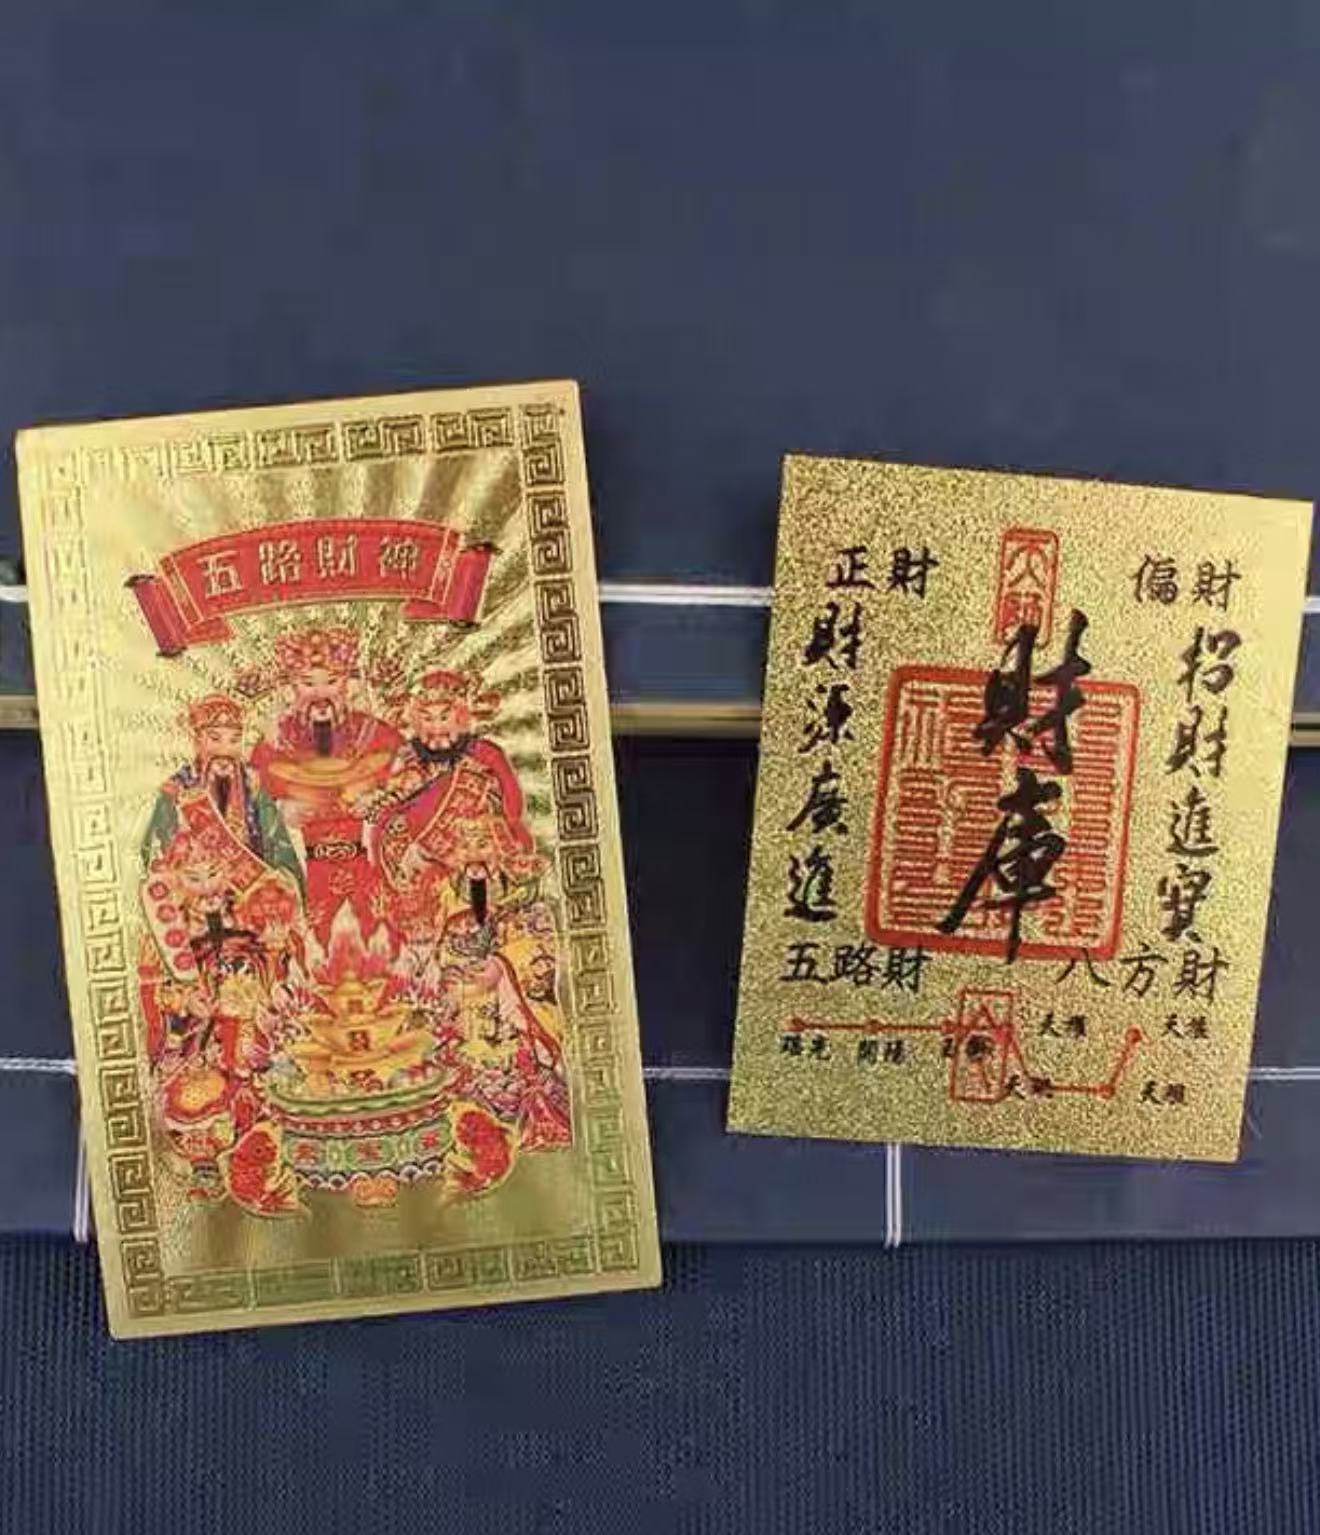 五路財神
正財
偏財
天師
財源廣進
財庫
招財進寶
五路財
八方財
天權
天璇
瑤光
開陽
天樞